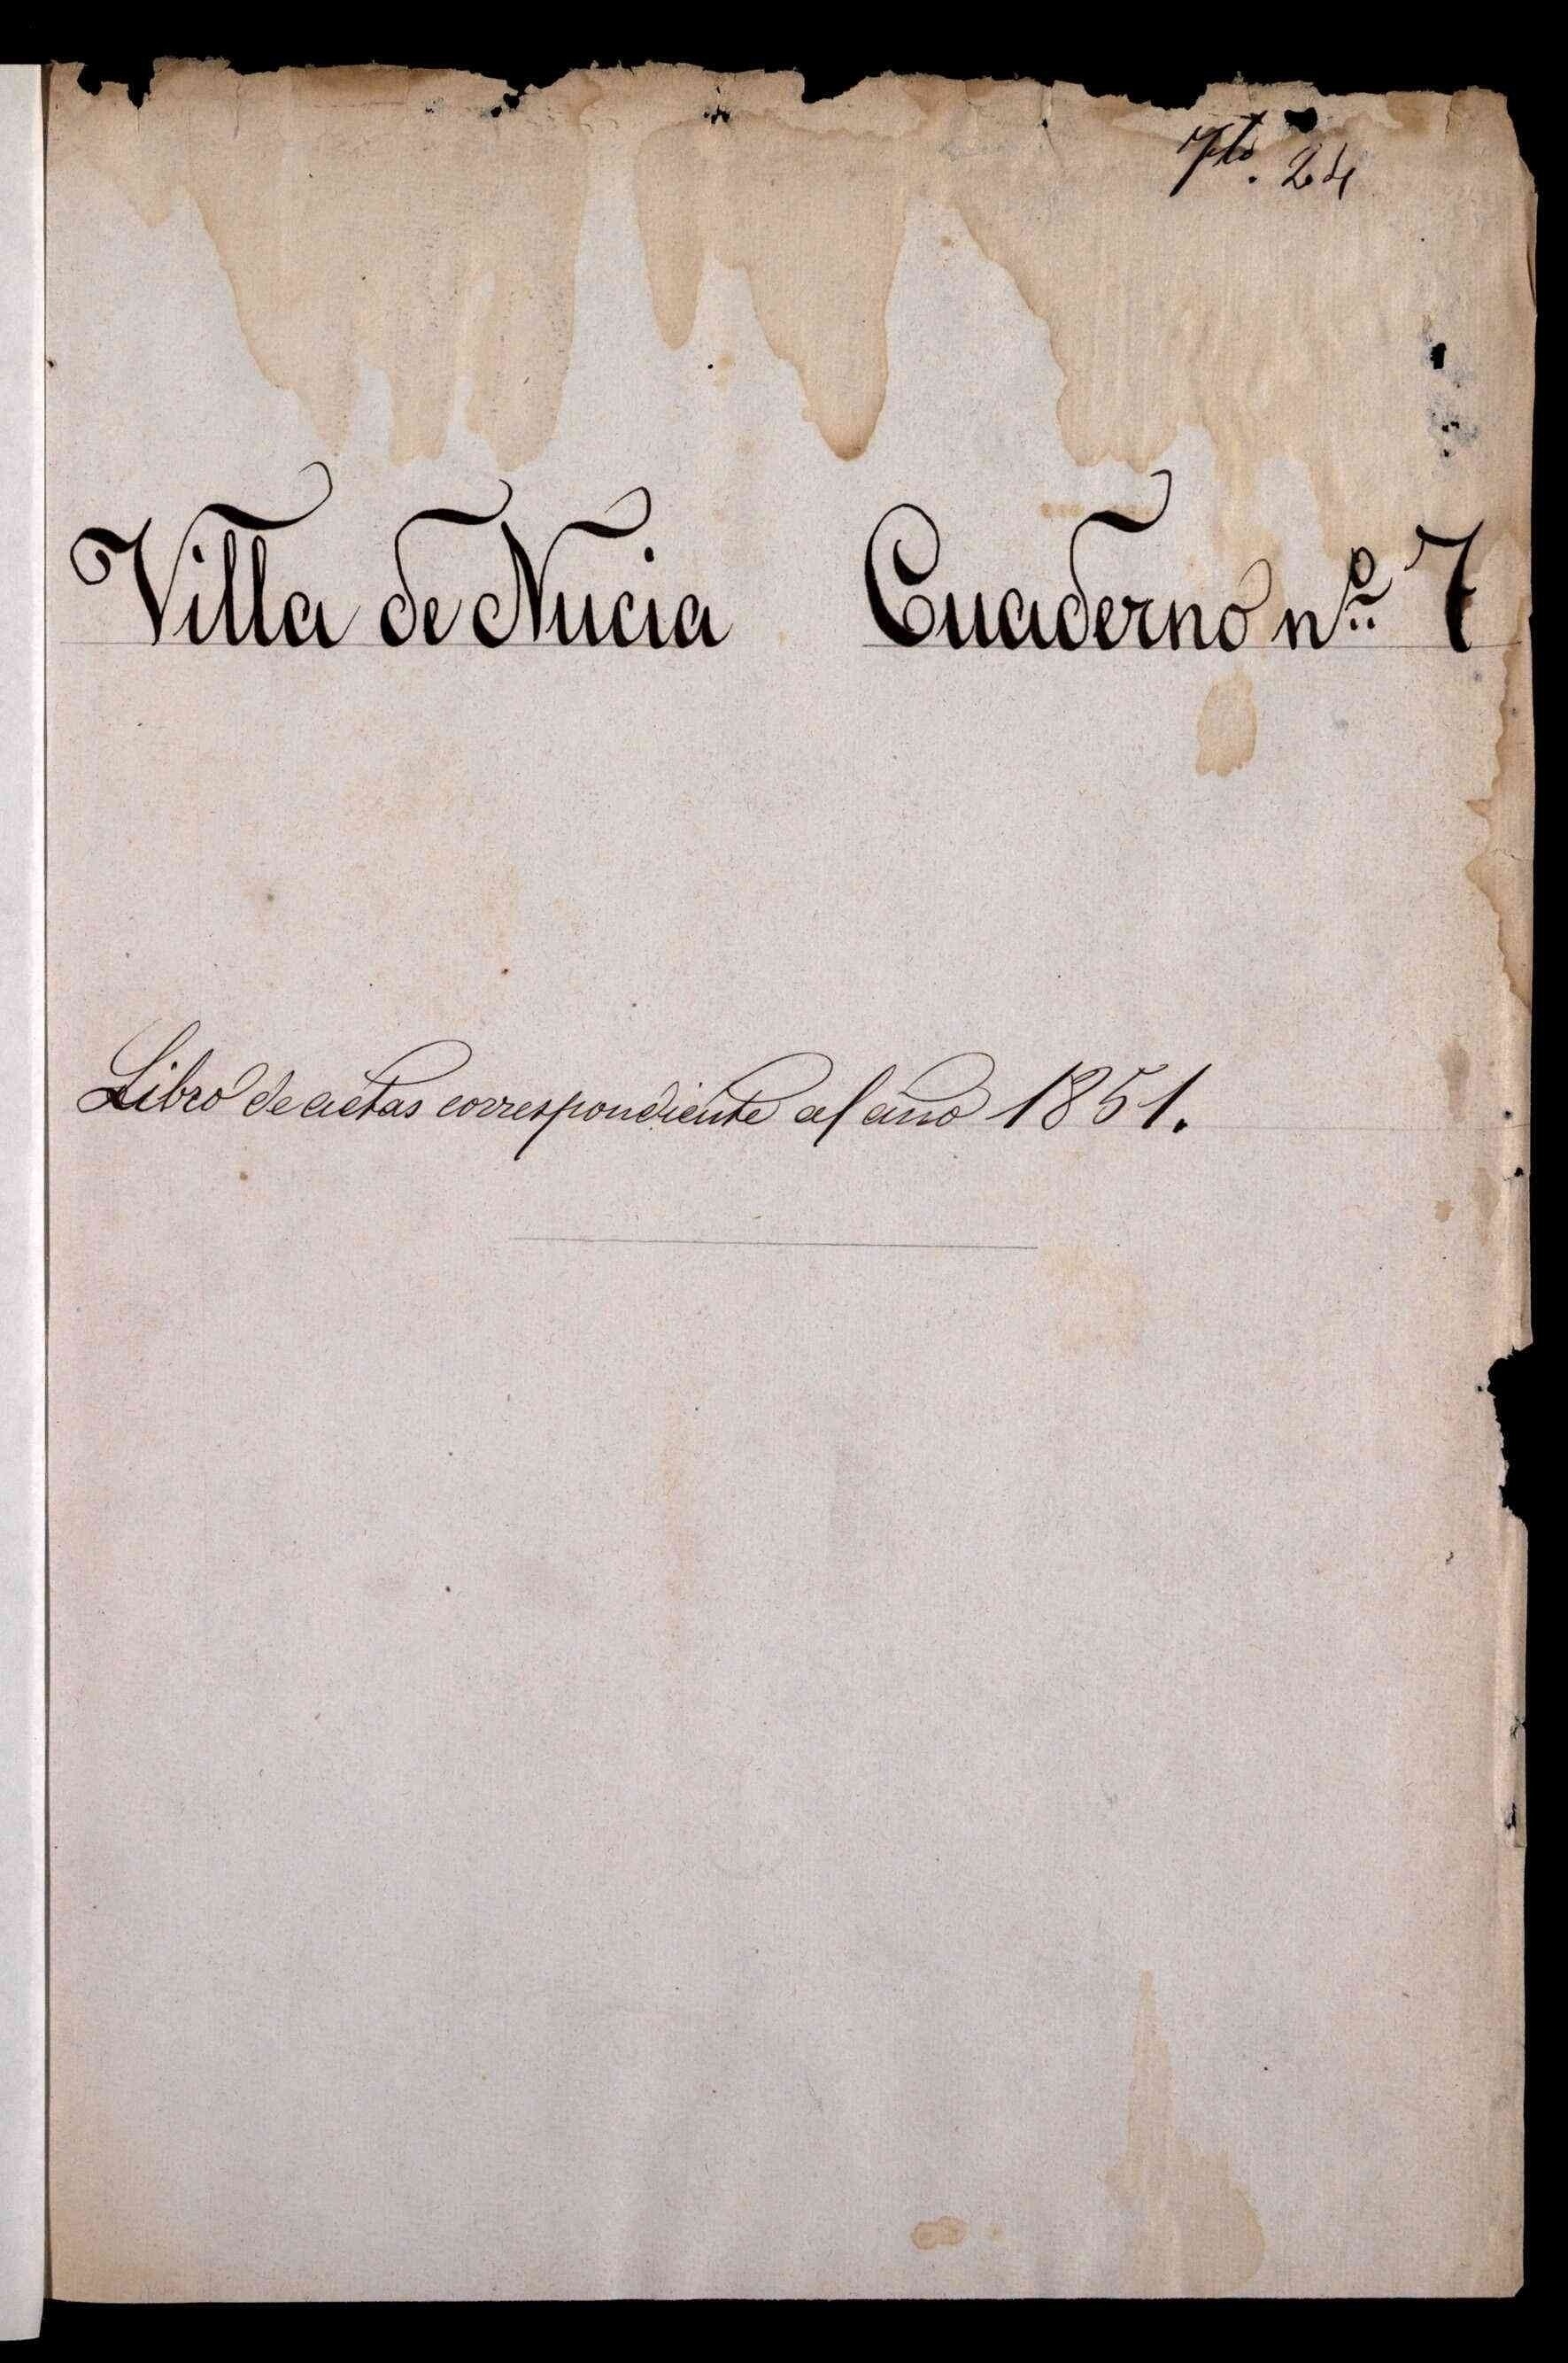 24
Villa de Nucia Cuaderno nº 7
Libro de actas correspondiente al año 1851.